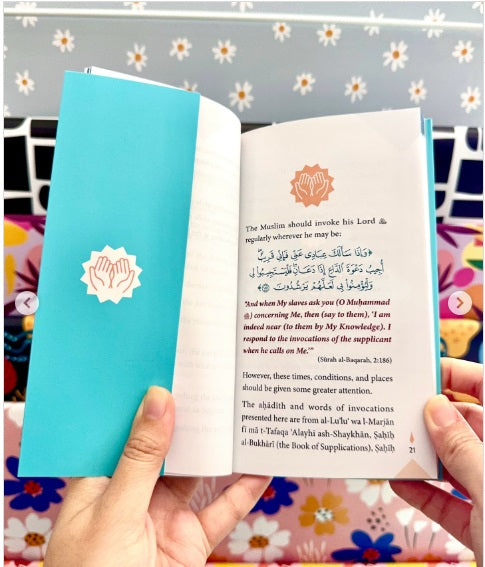 The Muslim should invoke his Lord ﷻ
regularly wherever he may be:
﴿وَإِذَا سَأَلَكَ عِبَادِى عَنِّى فَإِنِّى قَرِيبٌ
أُجِيبُ دَعْوَةَ ٱلدَّاعِ إِذَا دَعَانِ فَلْيَسْتَجِيبُوا۟ لِى
وَلْيُؤْمِنُوا۟ بِى لَعَلَّهُمْ يَرْشُدُونَ﴾
"And when My slaves ask you (O Muḥammad
ﷺ) concerning Me, then (say to them), 'I am
indeed near (to them by My Knowledge). I
respond to the invocations of the supplicant
when he calls on Me.'"
(Sūrah al-Baqarah, 2:186)
However, these times, conditions, and places
should be given some greater attention.
The aḥādīth and words of invocations
presented here are from al-Lu'lu' wa l-Marjān
fī mā t-Tafaqa 'Alayhi ash-Shaykhān, Ṣaḥīḥ
al-Bukhārī (the Book of Supplications), Ṣaḥīḥ
21